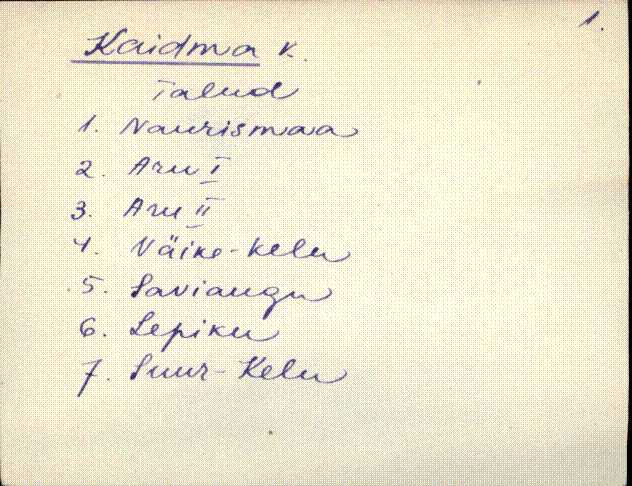 1.
Kaidma k.
Talud
1. Naurismaa
2. Aru I
3. Aru II
4. Väike-Kelu
5. Saviaugu
6. Lepiku
7. Suur-Kelu